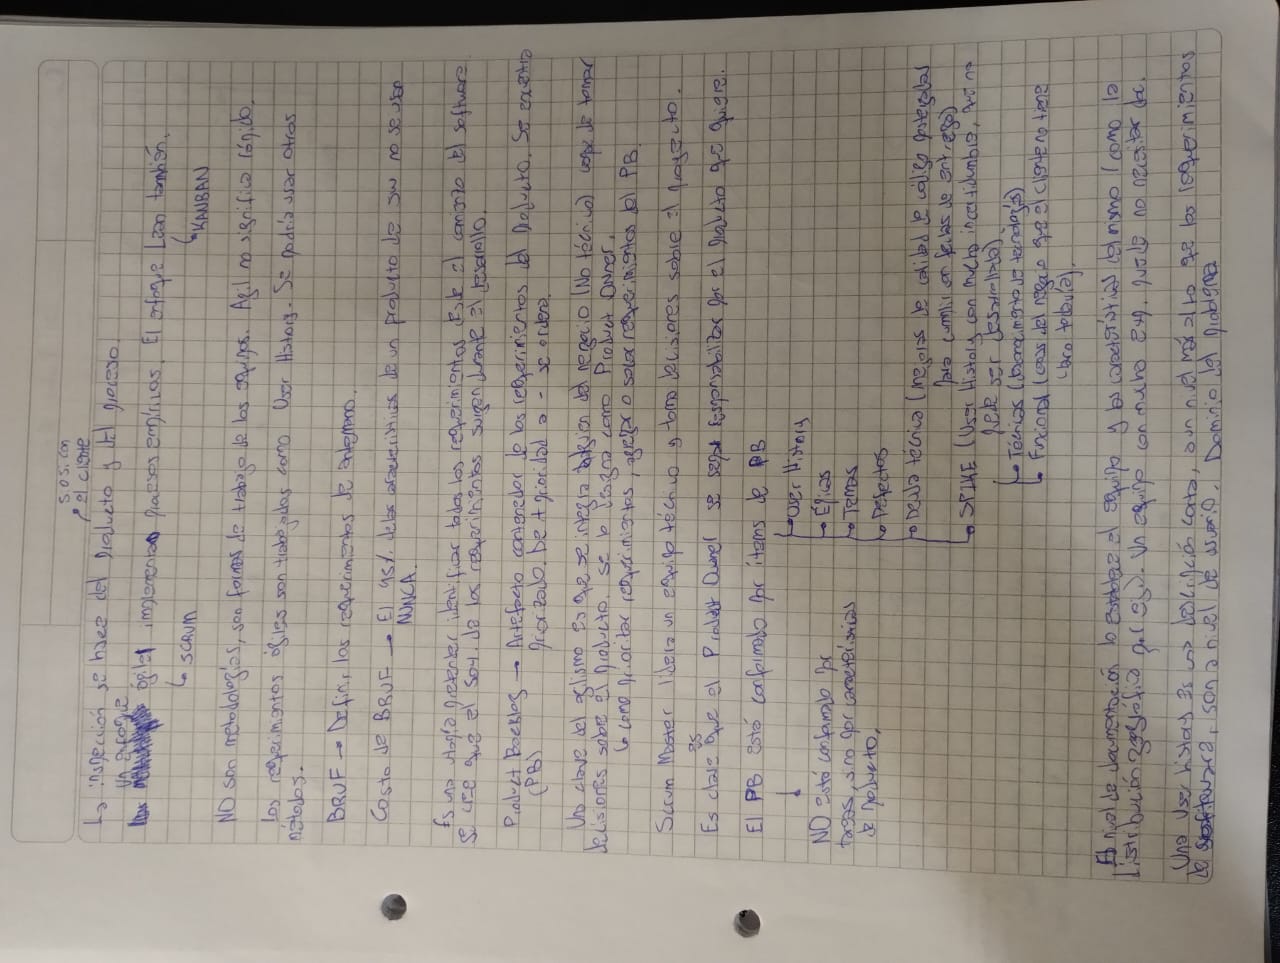 s.o.s. con
el cliente
↳ inspección se hace del producto y del proceso.
un enfoque
ágiles implementa procesos empíricos. El enfoque Lean también.
↳ SCRUM
↳ KANBAN
NO son metodologías, son formas de trabajo de los equipos. Agil no significa rápido.
Los requerimientos ágiles son trabajados como User History. Se podría usar otros
métodos.
BRUF → Definir los requerimientos de antemano.
Costo de BRUF → El 45% de las características de un producto de sw no se usan
NUNCA.
Es una utopía pretender identificar todos los requerimientos desde el comienzo del software
se cree que el 50% de los requerimientos surgen durante el desarrollo.
Product Backlog → Artefacto contenedor de los requerimientos del producto. Se encuentra
(PB) priorizado. De + prioridad a - se ordena.
Una clave del agilismo es que se integra alguien del negocio (No técnico) capaz de tomar
decisiones sobre el producto. se lo designa como Product Owner.
↳ como priorizar requerimientos, agregar o sacar requerimientos del PB.
Scrum Master lidera un equipo técnico y toma decisiones sobre el proyecto.
Es clave que el Product Owner se sepa responsabilizar por el producto que quiere.
El PB está conformado por items de PB
↓
NO está conformado por
tareas, sino por características
de producto.
→ User History
→ Épicas
→ Temas
→ Defectos
→ Deuda técnica (mejoras de calidad de código postergadas
para cumplir con fechas de entrega)
→ SPIKE (User History con mucha incertidumbre, que no
puede ser desarrollada).
→ Técnicas (desconocimiento de tecnologías)
→ Funcional (cosas del negocio que el cliente no tiene
claro todavía).
El nivel de documentación lo establece el equipo y las características del mismo (como la
distribución geográfica por ej). Un equipo con mucha exp. puede no necesitar doc.
Una User History es una descripción corta, a un nivel más alto que los requerimientos
de software, son a nivel de usuario. Dominio del problema